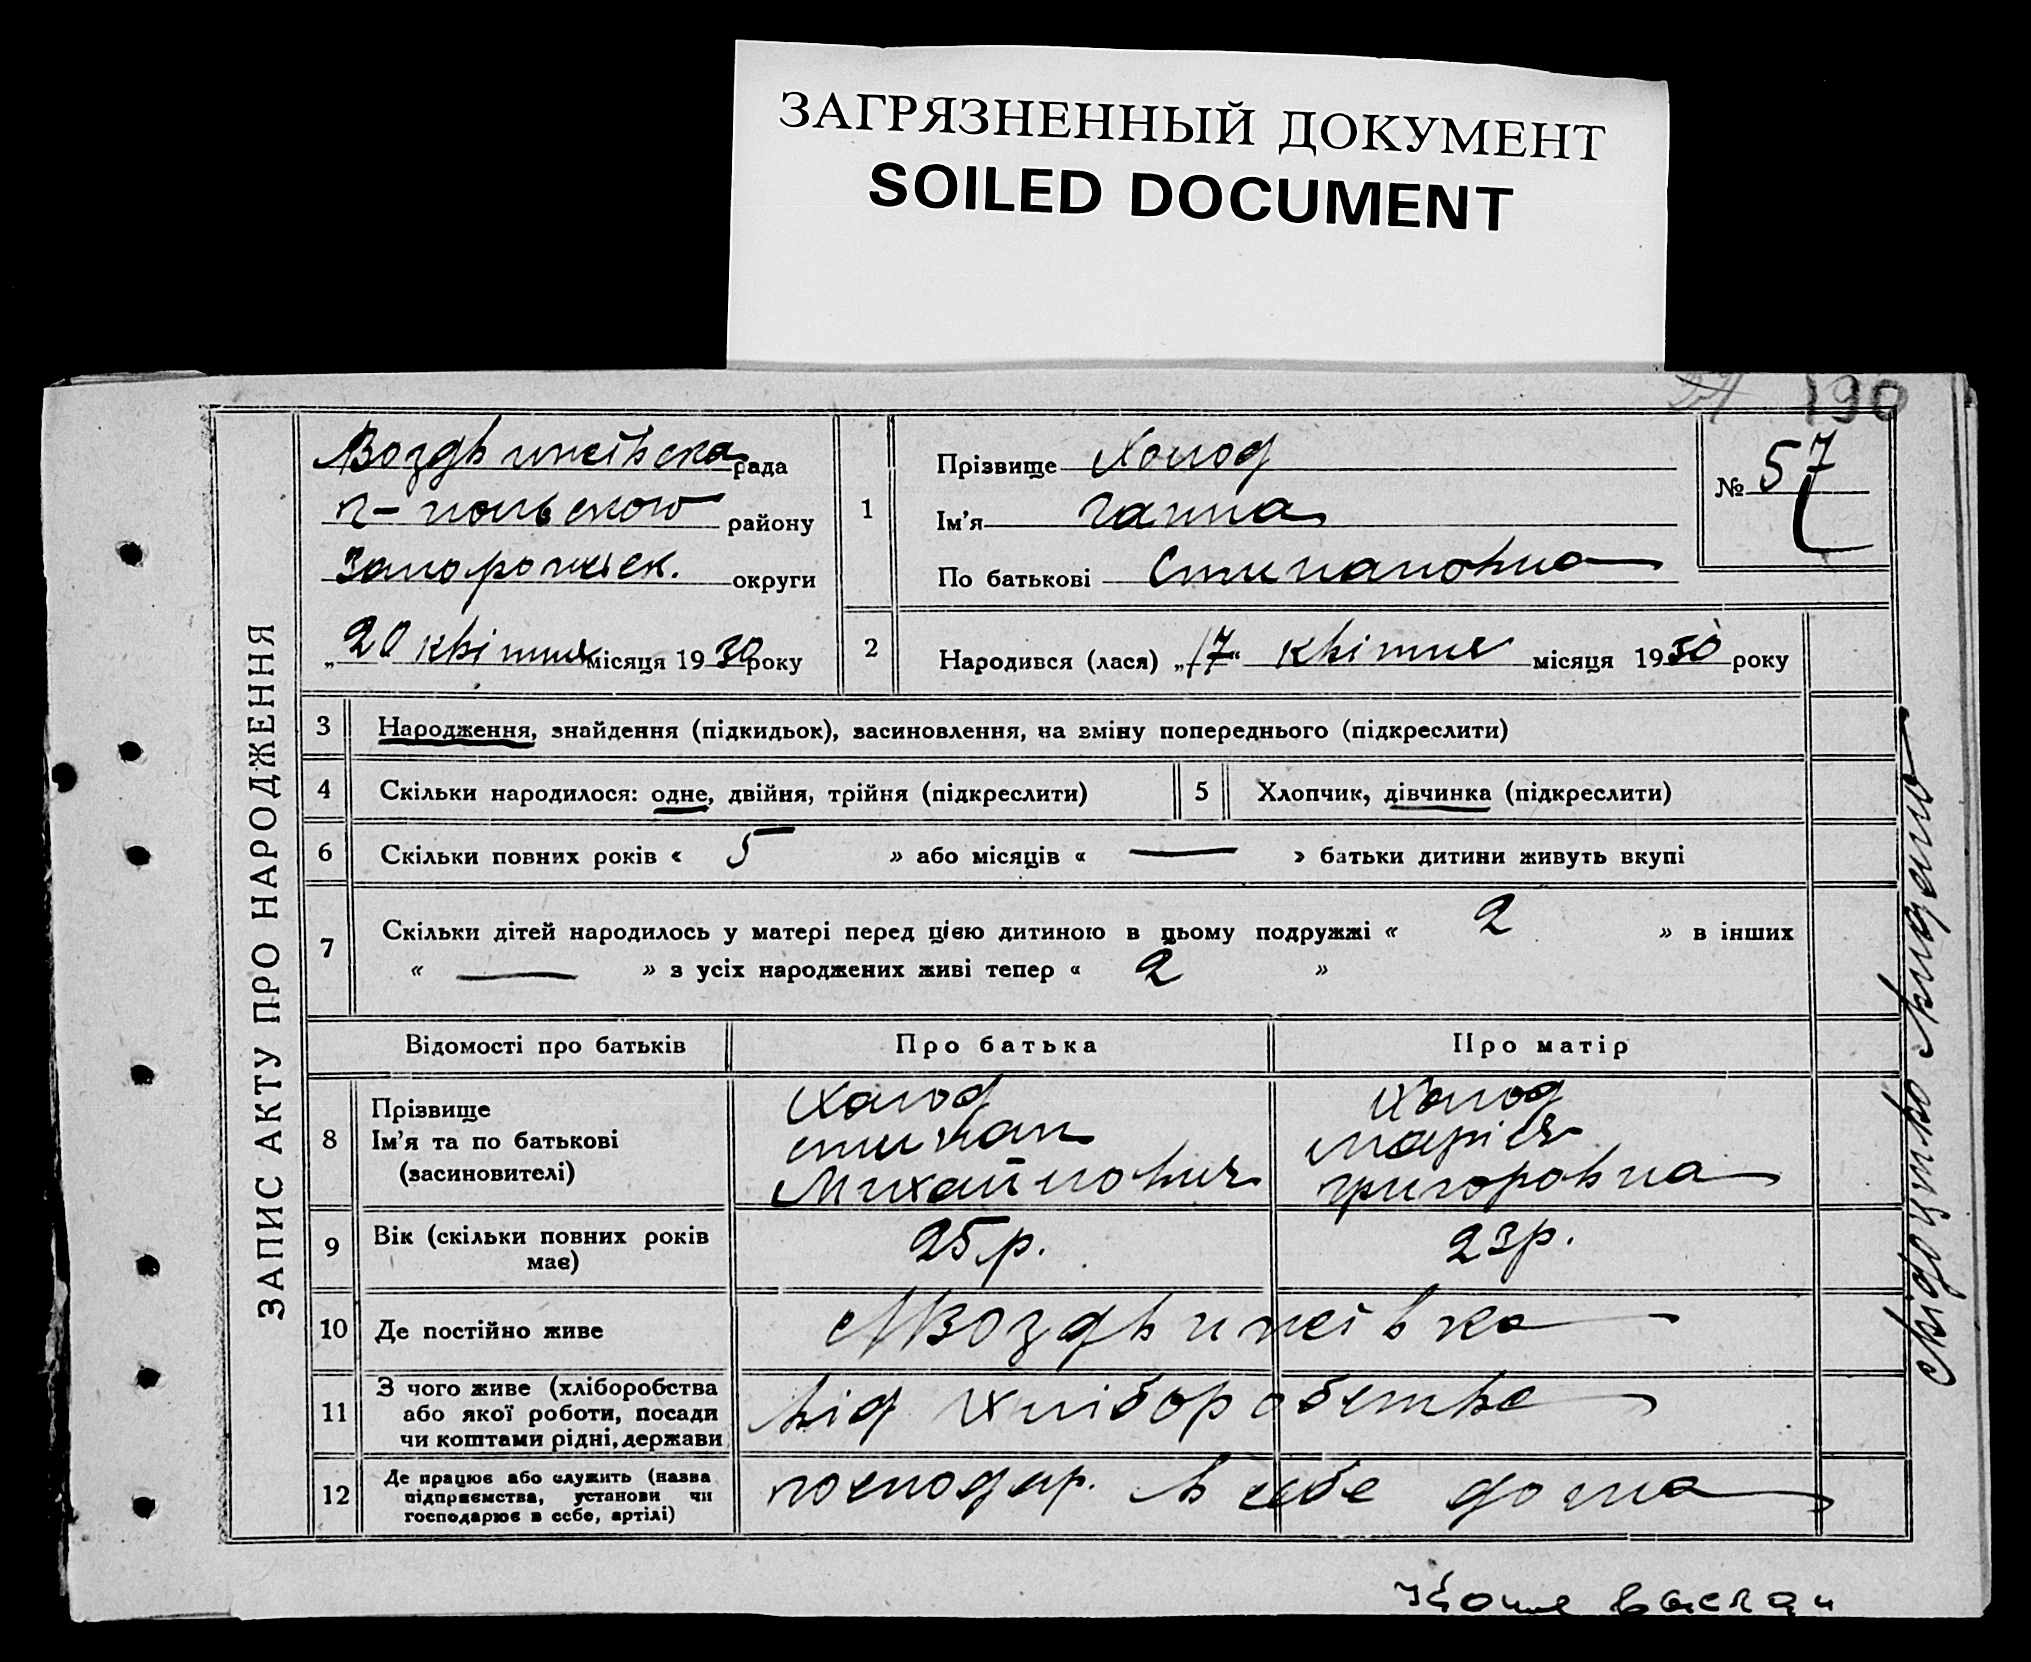 ЗАГРЯЗНЕННЫЙ ДОКУМЕНТ
SOILED DOCUMENT
190
ЗАПИС АКТУ ПРО НАРОДЖЕННЯ
Воздвижеївска рада
району
Запорожіск. округи
„20 квітня місяця 1930 року
1
Прізвище Холод
Ім’я Ганна
По батькові Степановна
№ 57
2
Народився (лася) „17“ квітня місяця 1930 року
3 Народження, знайдення (підкидьок), засиновлення, на зміну попереднього (підкреслити)
4 Скільки народилося: одне, двійня, трійня (підкреслити)
5 Хлопчик, дівчинка (підкреслити)
6 Скільки повних років « 5 » або місяців « — » батьки дитини живуть вкупі
7 Скільки дітей народилось у матері перед цією дитиною в цьому подружжі « 2 » в інших
« — » з усіх народжених живі тепер « 2 »
Відомості про батьків Про батька Про матір
8 Прізвище
Ім’я та по батькові
(засиновителі)
Холод
Степан
Михайлович
Холод
Марія
Григоровна
9 Вік (скільки повних років
має)
25 р.
23 р.
10 Де постійно живе Воздвижеївка
11 З чого живе (хліборобства
або якої роботи, посади
чи коштами рідні, держави
від хліборобства
12 Де працює або служить (назва
підприємства, установи чи
господарює в себе, артілі)
господар. в себе дома
Свідоцтво видано